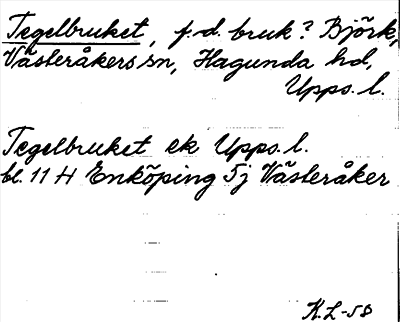 Tegelbruket, f.d. bruk? Björk,
Västeråkers sn, Hagunda hd,
Upps. l.
Tegelbruket ek Upps. l.
bl. 11 H Enköping 5j Västeråker
K.L-58